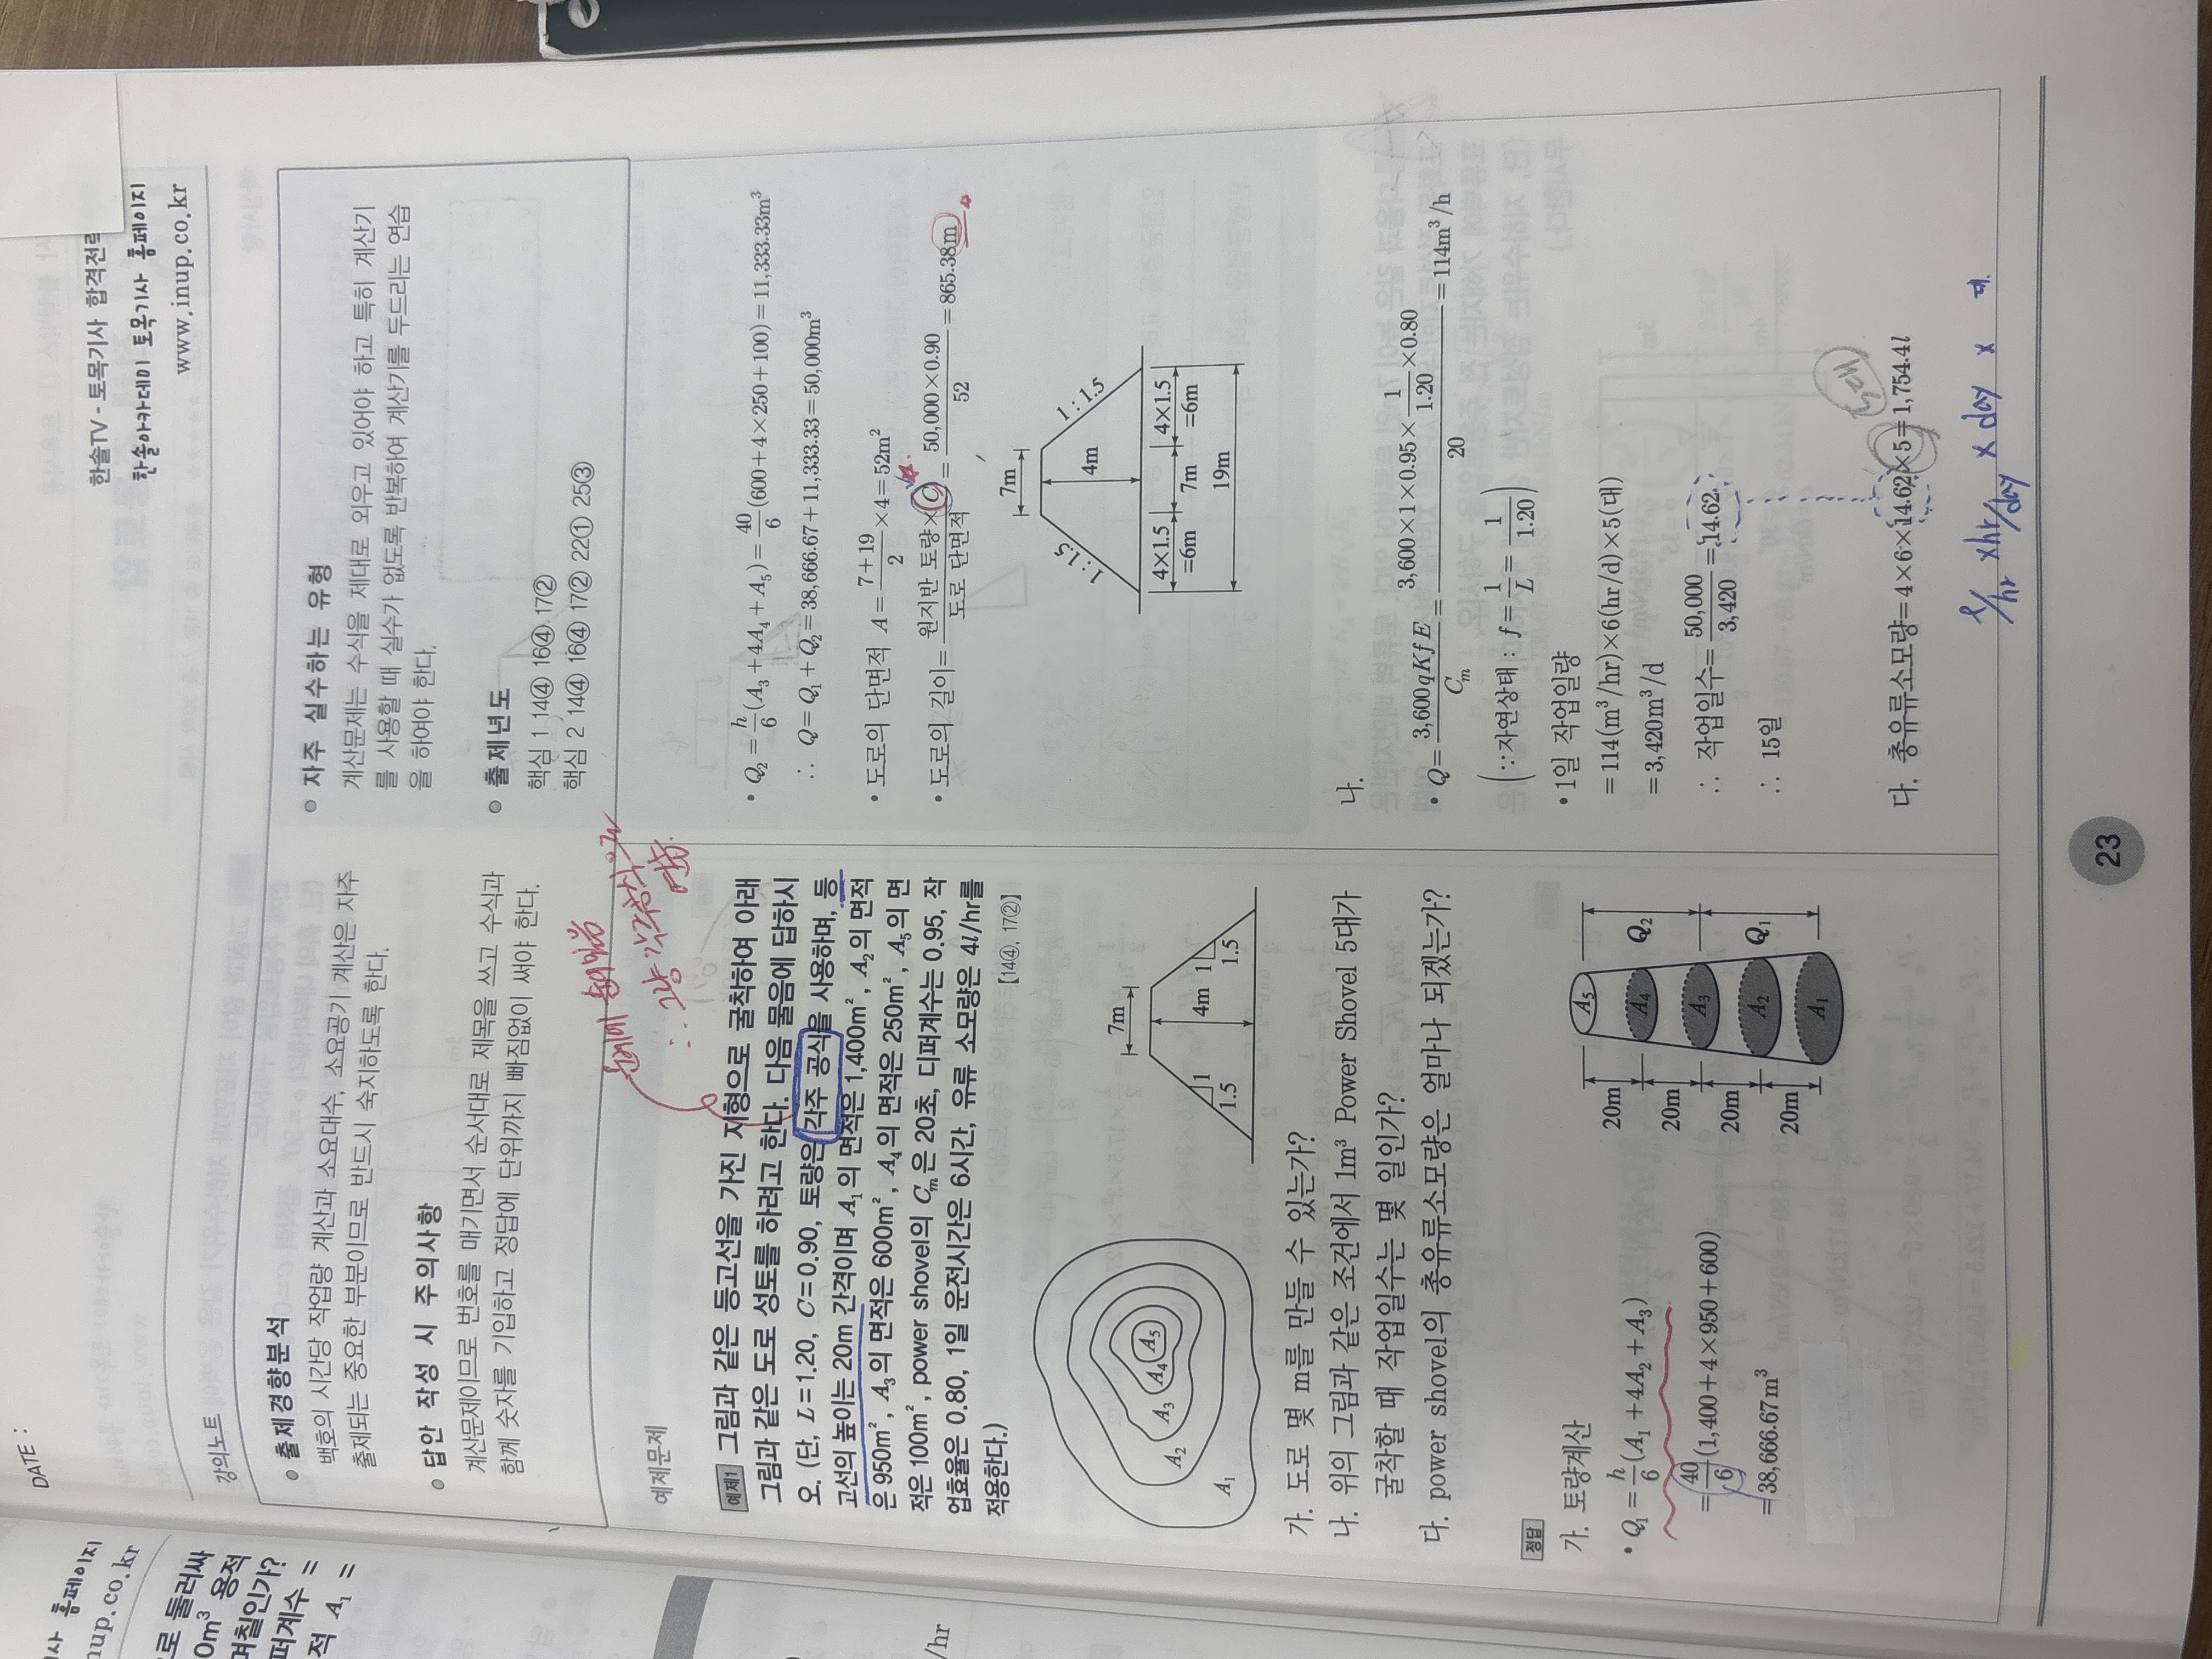 DATE :
한솔TV - 토목기사 합격전략
한솔아카데미 토목기사 홈페이지
www.inup.co.kr
강의노트
출제경향분석
백호의 시간당 작업량 계산과 소요대수, 소요공기 계산은 자주
출제되는 중요한 부분이므로 반드시 숙지하도록 한다.
답안 작성 시 주의사항
계산문제이므로 번호를 매기면서 순서대로 제목을 쓰고 수식과
함께 숫자를 기입하고 정답에 단위까지 빠짐없이 써야 한다.
자주 실수하는 유형
계산문제는 수식을 제대로 외우고 있어야 하고 특히 계산기
를 사용할 때 실수가 없도록 반복하여 계산기를 두드리는 연습
을 하여야 한다.
출제년도
핵심 1 14④ 16④ 17②
핵심 2 14④ 16④ 17② 22① 25③
예제문제
예제1 그림과 같은 등고선을 가진 지형으로 굴착하여 아래
그림과 같은 도로 성토를 하려고 한다. 다음 물음에 답하시
오. (단, L=1.20, C=0.90, 토량은 각주 공식을 사용하며, 등
고선의 높이는 20m 간격이며 A₁의 면적은 1,400m², A₂의 면적
은 950m², A₃의 면적은 600m², A₄의 면적은 250m², A₅의 면
적은 100m², power shovel의 Cₘ은 20초, 디퍼계수는 0.95, 작
업효율은 0.80, 1일 운전시간은 6시간, 유류 소모량은 4l/hr를
적용한다.)
[14④, 17②]
A₁
A₂
A₃
A₄
A₅
7m
4m
1
1.5
1
1.5
가. 도로 몇 m를 만들 수 있는가?
나. 위의 그림과 같은 조건에서 1m³ Power Shovel 5대가
굴착할 때 작업일수는 몇 일인가?
다. power shovel의 총유류소모량은 얼마나 되겠는가?
정답
가. 토량계산
• Q₁ = h/6 (A₁+4A₂+A₃)
= 40/6 (1,400+4×950+600)
= 38,666.67m³
20m
20m
20m
20m
A₅
A₄
A₃
A₂
A₁
Q₂
Q₁
• Q₂ = h/6 (A₃+4A₄+A₅) = 40/6 (600+4×250+100) = 11,333.33m³
∴ Q = Q₁+Q₂ = 38,666.67+11,333.33 = 50,000m³
• 도로의 단면적 A = 7+19/2 ×4 = 52m²
• 도로의 길이 = 원지반 토량×C/도로 단면적 = 50,000×0.90/52 = 865.38m
7m
1 : 1.5
4m
1 : 1.5
4×1.5
=6m
7m
4×1.5
=6m
19m
나.
• Q = 3,600qKfE/Cₘ = 3,600×1×0.95×1/1.20×0.80/20 = 114m³/h
(∵ 자연상태 : f = 1/L = 1/1.20)
• 1일 작업일량
= 114(m³/hr)×6(hr/d)×5(대)
= 3,420m³/d
∴ 작업일수 = 50,000/3,420 = 14.62
∴ 15일
다. 총유류소모량 = 4×6×14.62×5 = 1,754.4l
5대
l/hr × hr/day × day × 대
23
홈페이지
up.co.kr
로 둘러싸
0m³ 용적
며칠인가?
퍼계수 =
적 A₁ =
/hr